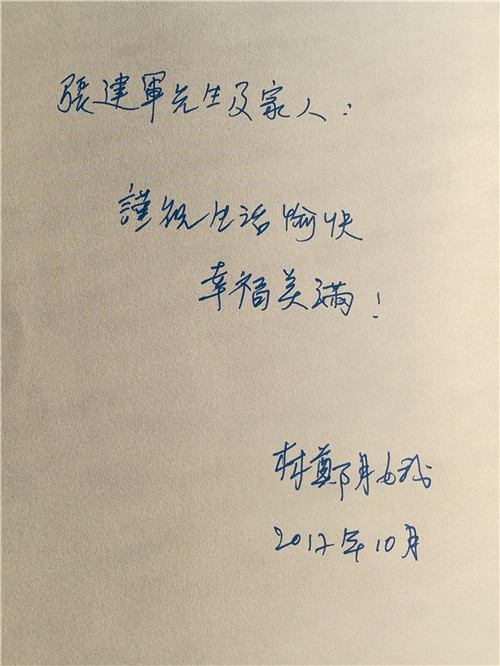 張建軍先生及家人：
謹祝生活愉快
幸福美滿！
林鄭月娥
2017年10月